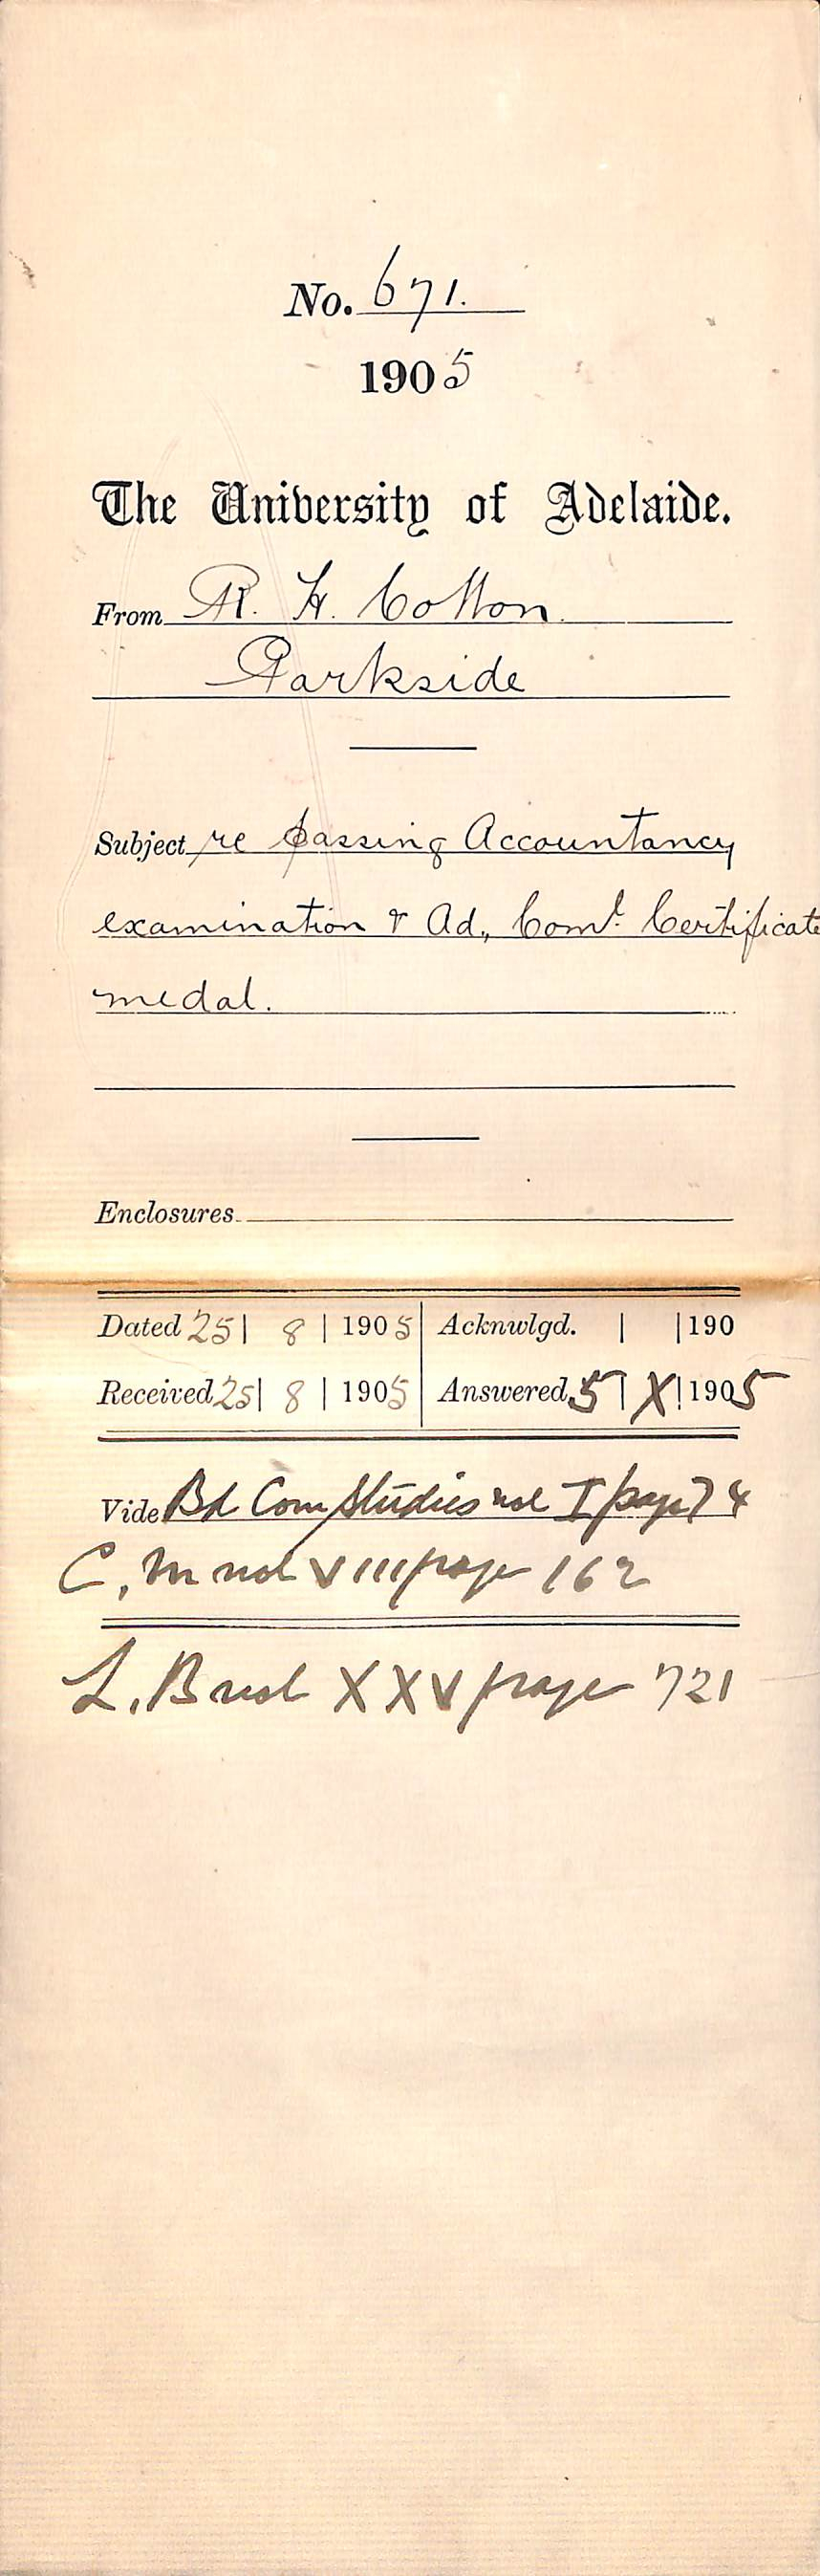 No. 671.
1905
The University of Adelaide.
From R. H. Cotton
Parkside
Subject re passing Accountancy
examination & Ad., Coml. Certificate
medal.
Enclosures
Dated 25 | 8 | 1905 | Acknwlgd. | | 190
Received 25 | 8 | 1905 | Answered 5 | X | 1905
Vide Bd Com Studies vol I page 74
C, M vol VIII page 162
L, B vol XXV page 721